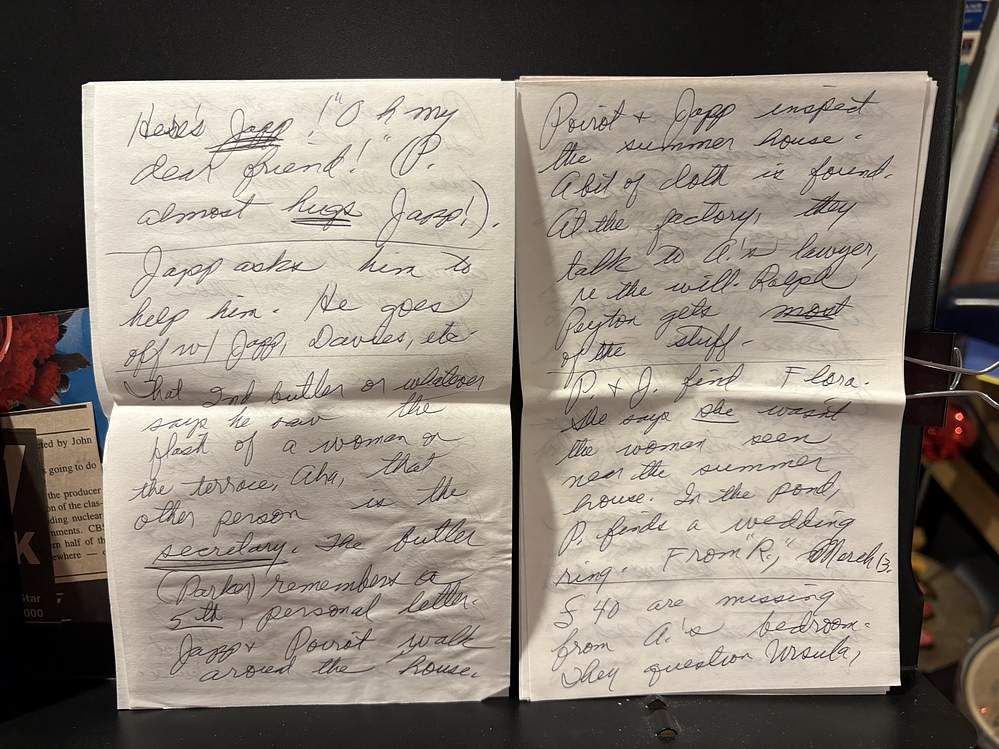 Here's Japp! "Oh my
dear friend!" (P.
almost hugs Japp!).
Japp asks him to
help him. He goes
off w/ Japp, Davies, etc.
That 2nd butler or whatever
says he saw the
flash of a woman on
the terrace, Aha, that
other person is the
secretary. The butler
(Parker) remembers a
5th, personal letter.
Japp + Poirot walk
around the house.
Poirot + Japp inspect
the summer house.
A bit of cloth is found.
At the factory, they
talk to A.'s lawyer,
re the will. Ralph
Peyton gets most
of the stuff.
P. + J. find Flora.
She says she wasn't
the woman seen
near the summer
house. In the pond,
P. finds a wedding
ring. From "R.," March 13.
£ 40 are missing
from A.'s bedroom.
They question Ursula,
ed by John
going to do
the producer
on of the clas-
ding nuclear
nments. CBS
rn half of the
ewhere —
K
Star
000